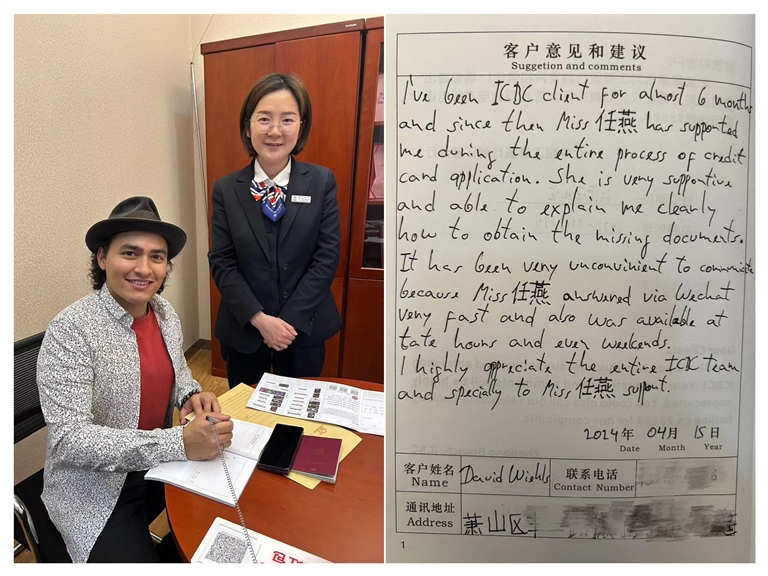 客户意见和建议
Suggetion and comments
I've been ICBC client for almost 6 months
and since then Miss 任燕 has supported
me during the entire process of credit
card application. She is very supportive
and able to explain me clearly
how to obtain the missing documents.
It has been very unconvinient to communicate
because Miss 任燕 answured via Wechat
very fast and also was available at
late hours and even weekends.
I highly appreciate the entire ICBC team
and specially to Miss 任燕 support.
2024年 04月 15日
Date Month Year
客户姓名 David Wiehls 联系电话
Name Contact Number
通讯地址 萧山区
Address
1